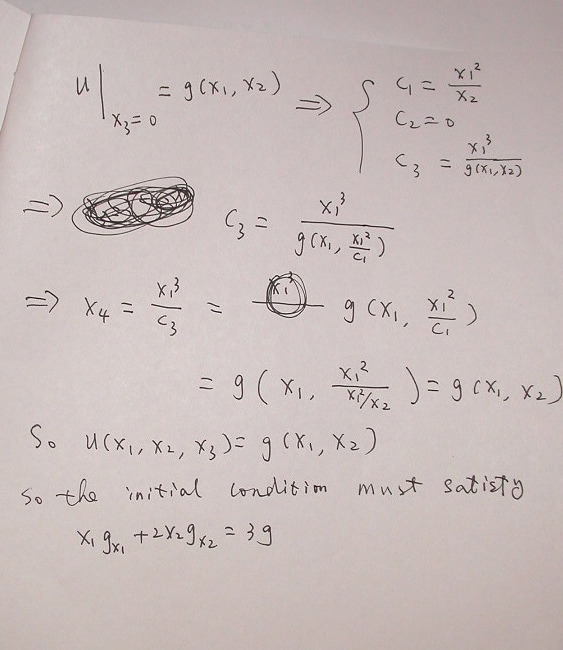 u|_{x₃=0} = g(x₁, x₂) ⇒ { c₁ = x₁²/x₂
c₂ = 0
c₃ = x₁³/g(x₁,x₂)
⇒ c₃ = x₁³/g(x₁, x₁²/c₁)
⇒ x₄ = x₁³/c₃ = g(x₁, x₁²/c₁)
= g(x₁, x₁²/(x₁²/x₂)) = g(x₁, x₂)
So u(x₁, x₂, x₃) = g(x₁, x₂)
So the initial condition must satisty
x₁g_{x₁} + 2x₂g_{x₂} = 3g